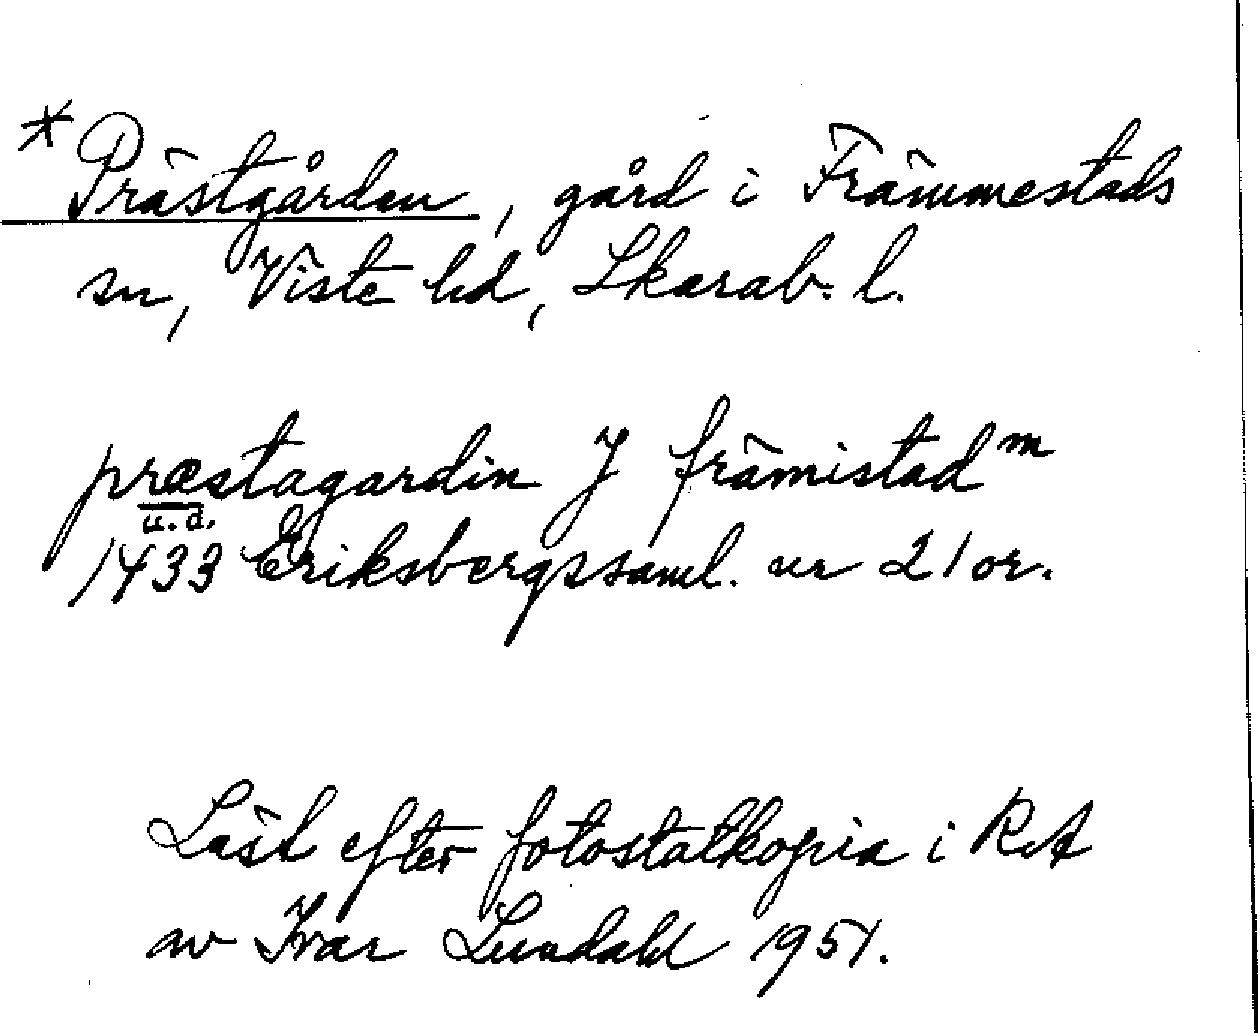 * Prästgården, gård i Främmestads
sn, Viste hd, Skarab. l.
præstagardin J främistad m
u. a.
1433 Eriksbergssaml. nr 21 or.
Läst efter fotostatkopia i RA
av Ivar Lundahl 1951.